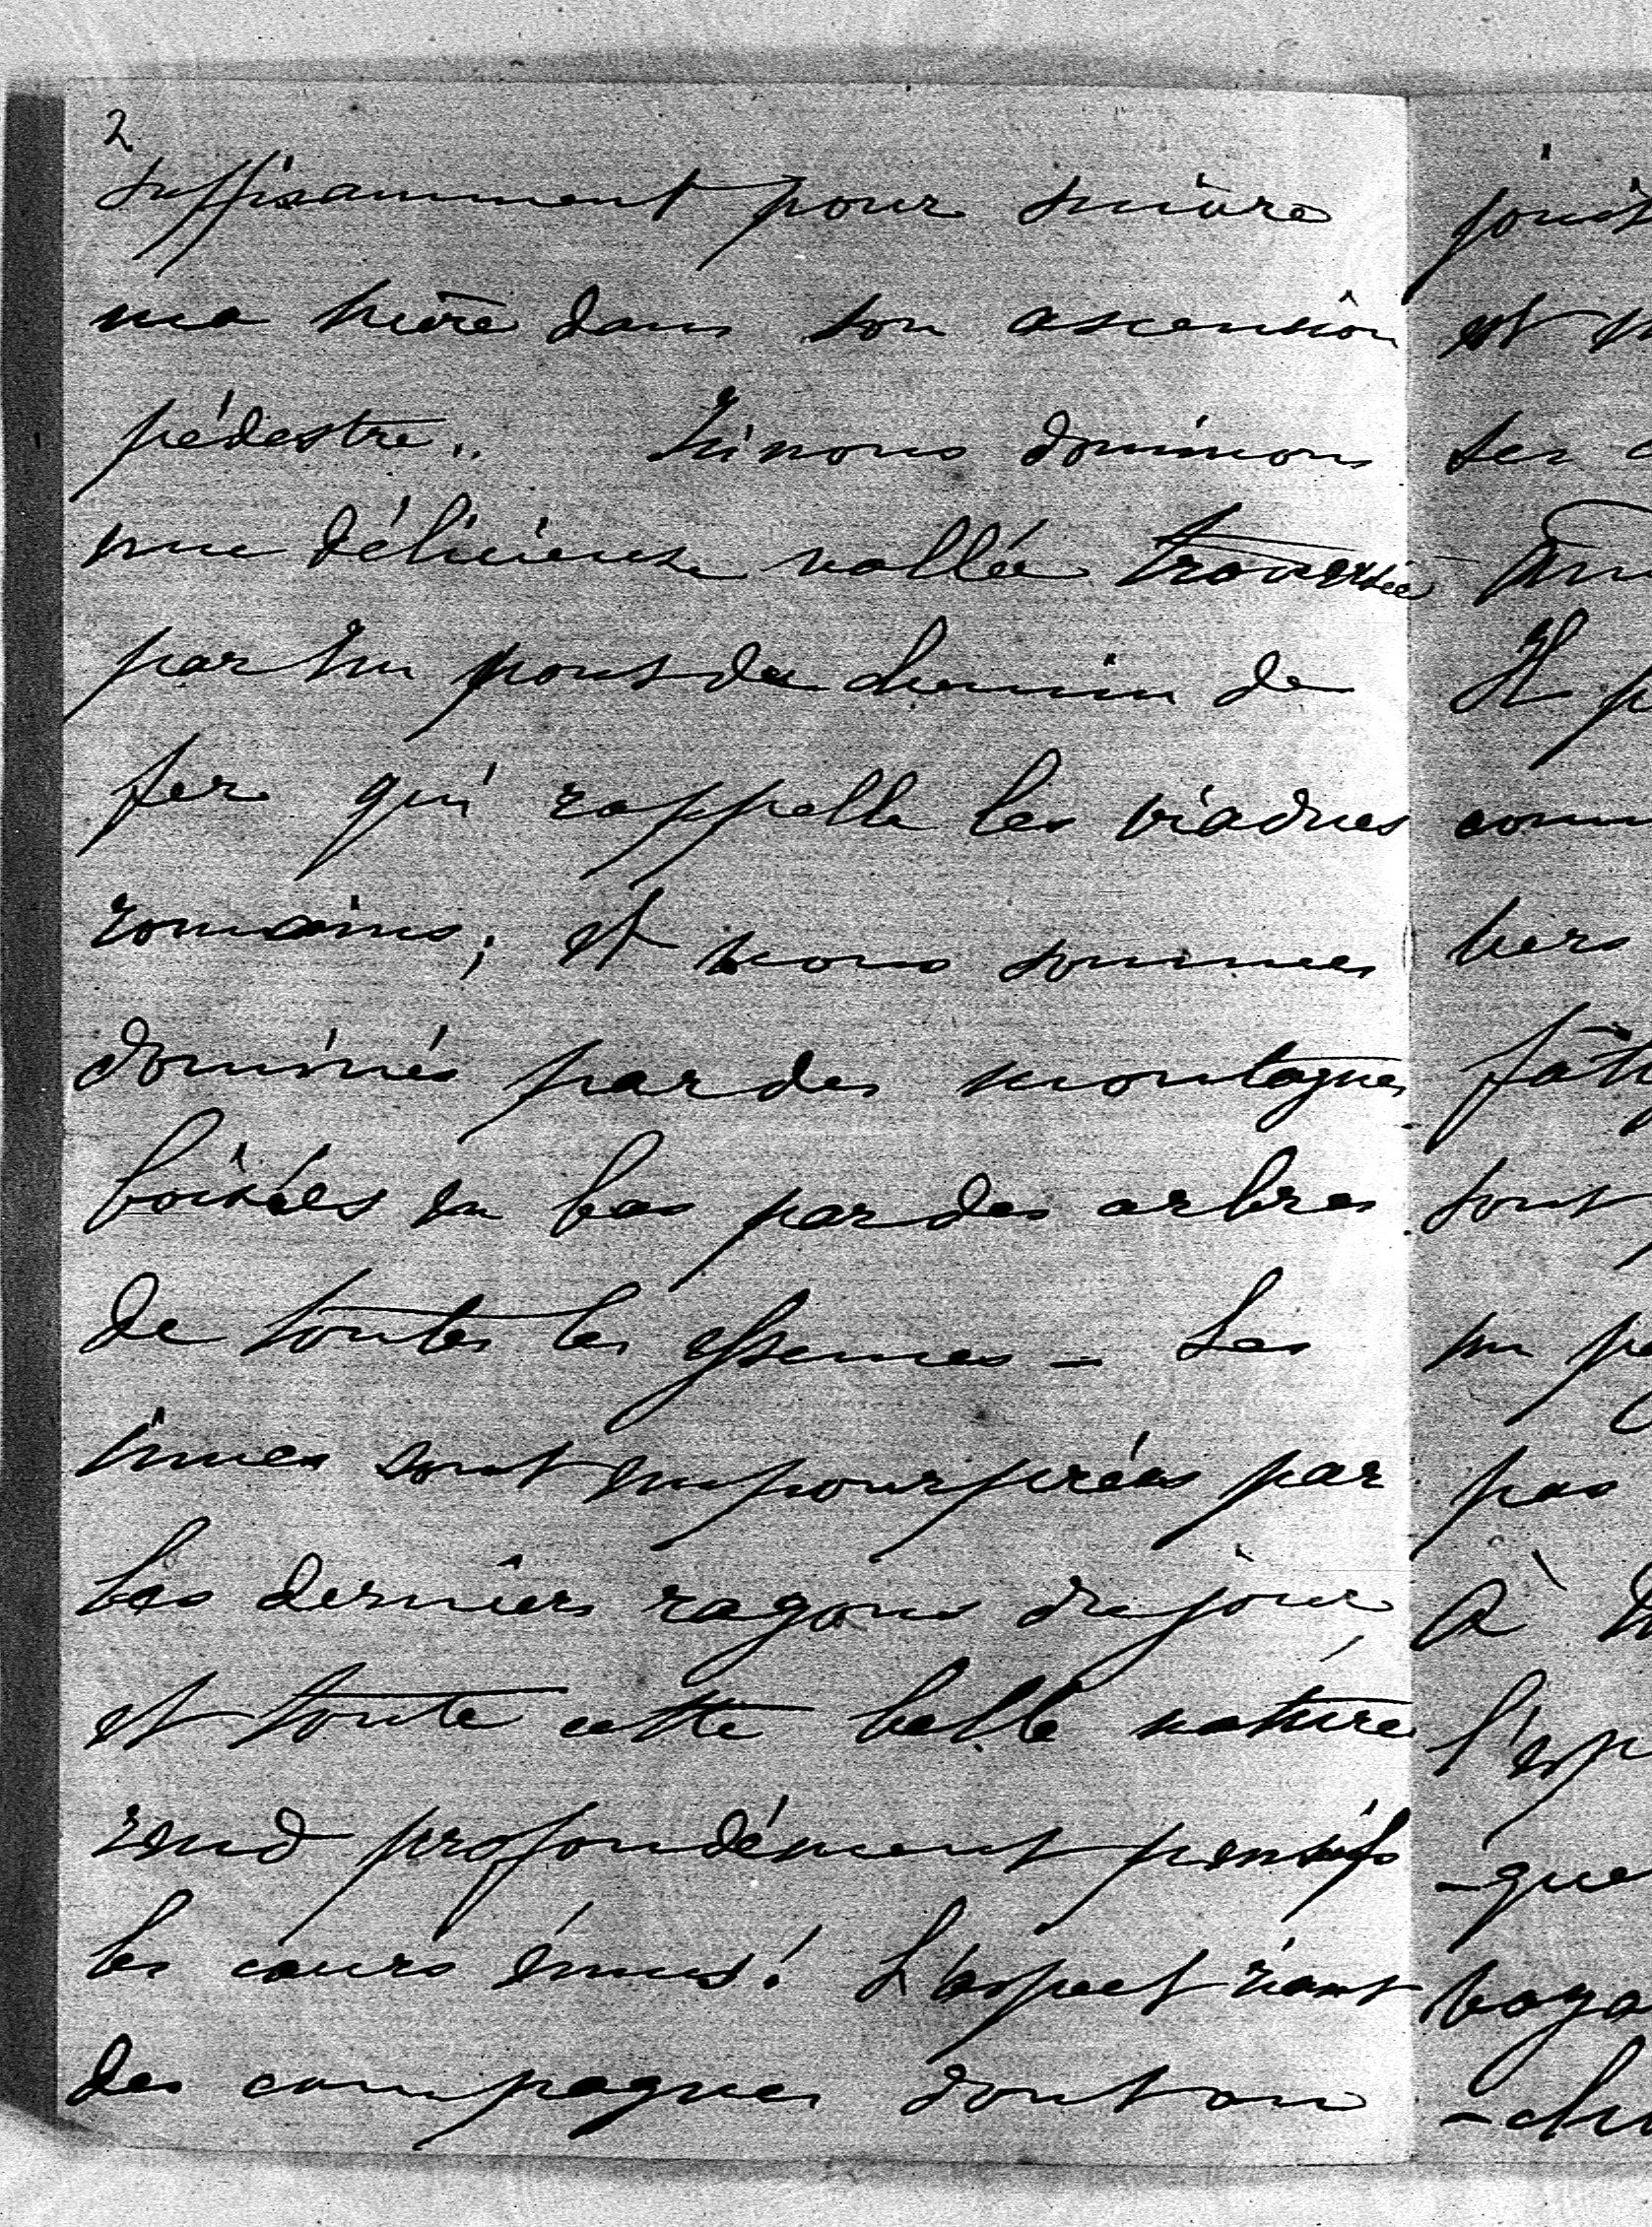 2
suffisamment pour suivre
ma mère dans son ascension
pédestre.. Ici nous dominons
une délicieuse vallée traversée
par un pont de chemin de
fer qui rappelle les viaducs
romains; et nous sommes
dominés par des montagnes
boisées en bas par des arbres
de toutes les essences - Les
cimes sont empourprées par
les derniers rayons du jour
et toute cette belle nature
rend profondément pensifs
les cœurs émus! L'aspect riant
des campagnes dont on
et
Il
vers
sont
un
pas
à